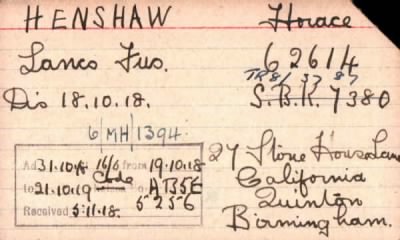 HENSHAW Horace
Lancs Fus. 62614
TR8/ 37 87
Dis 18.10.18. S.B.R. 7380
6/MH/1394.
31.10.18 16/6 from 19.10.18
to 21.10.19 Code AB5E
Received 5.11.18. 5256
27 Stone House Lane
California
Quinton
Birmingham.